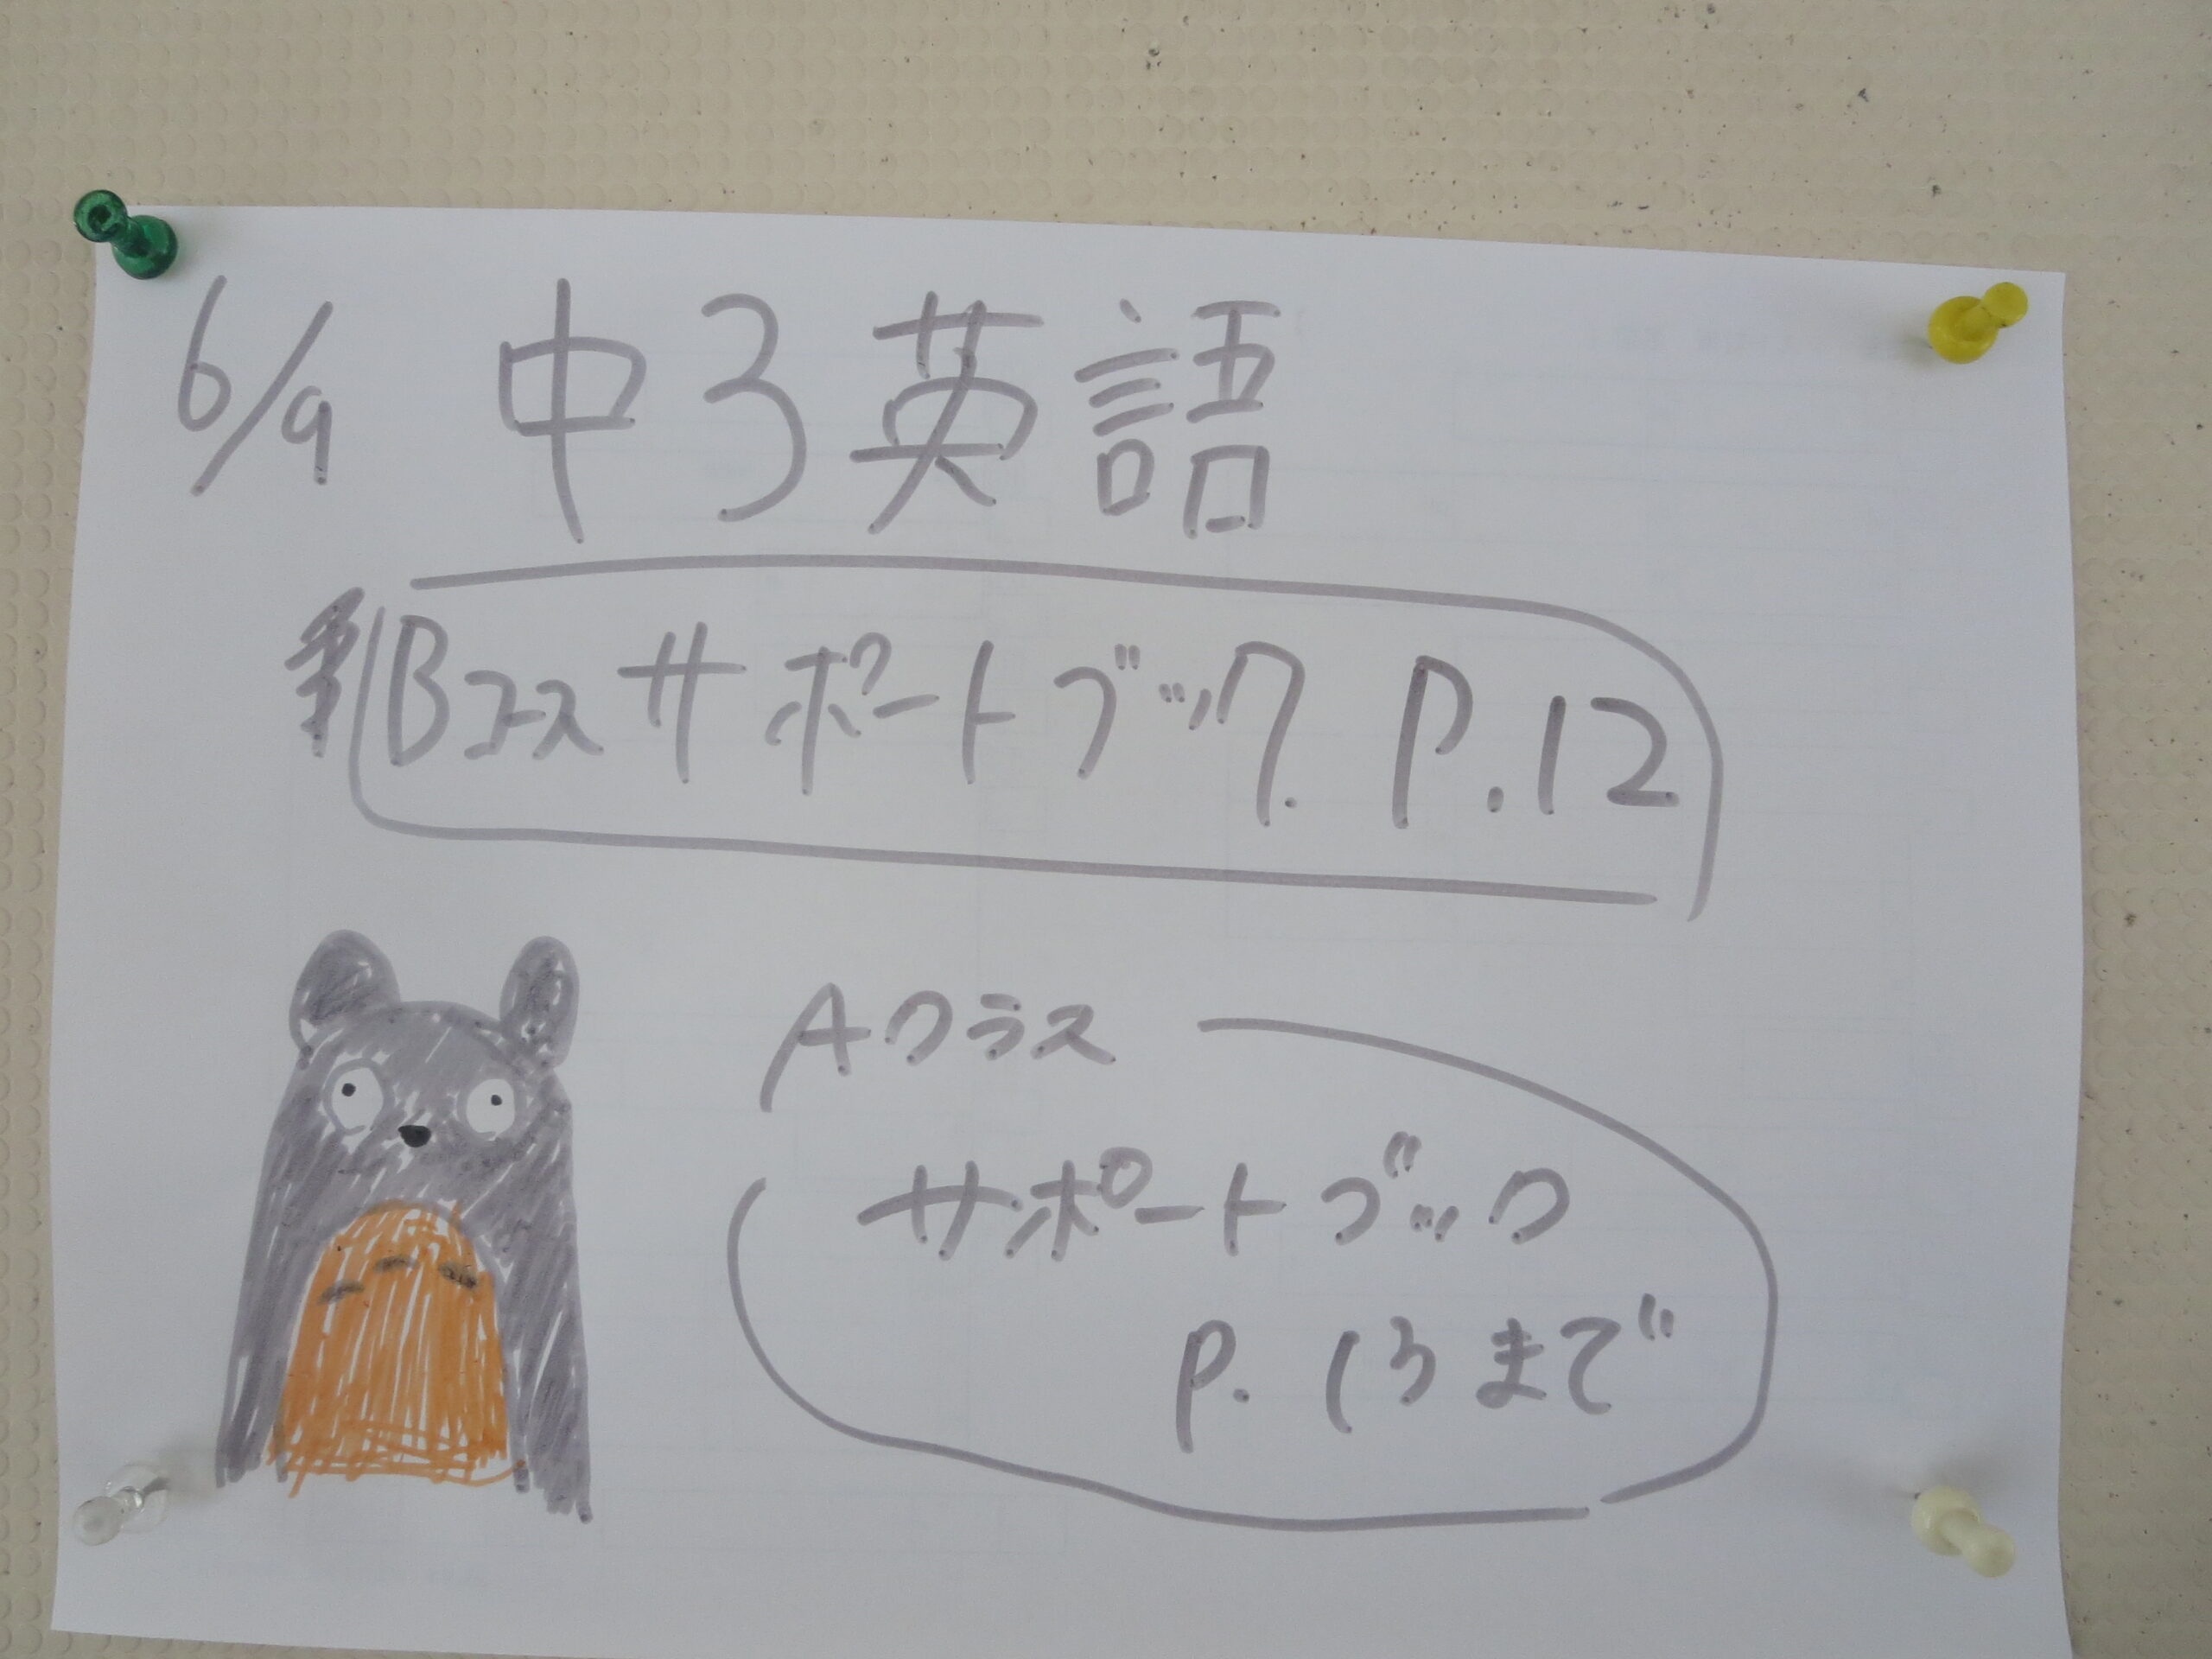 6/9 中3英語
Bコースサポートブック. P.12
Aクラス
サポートブック
P. 13まで